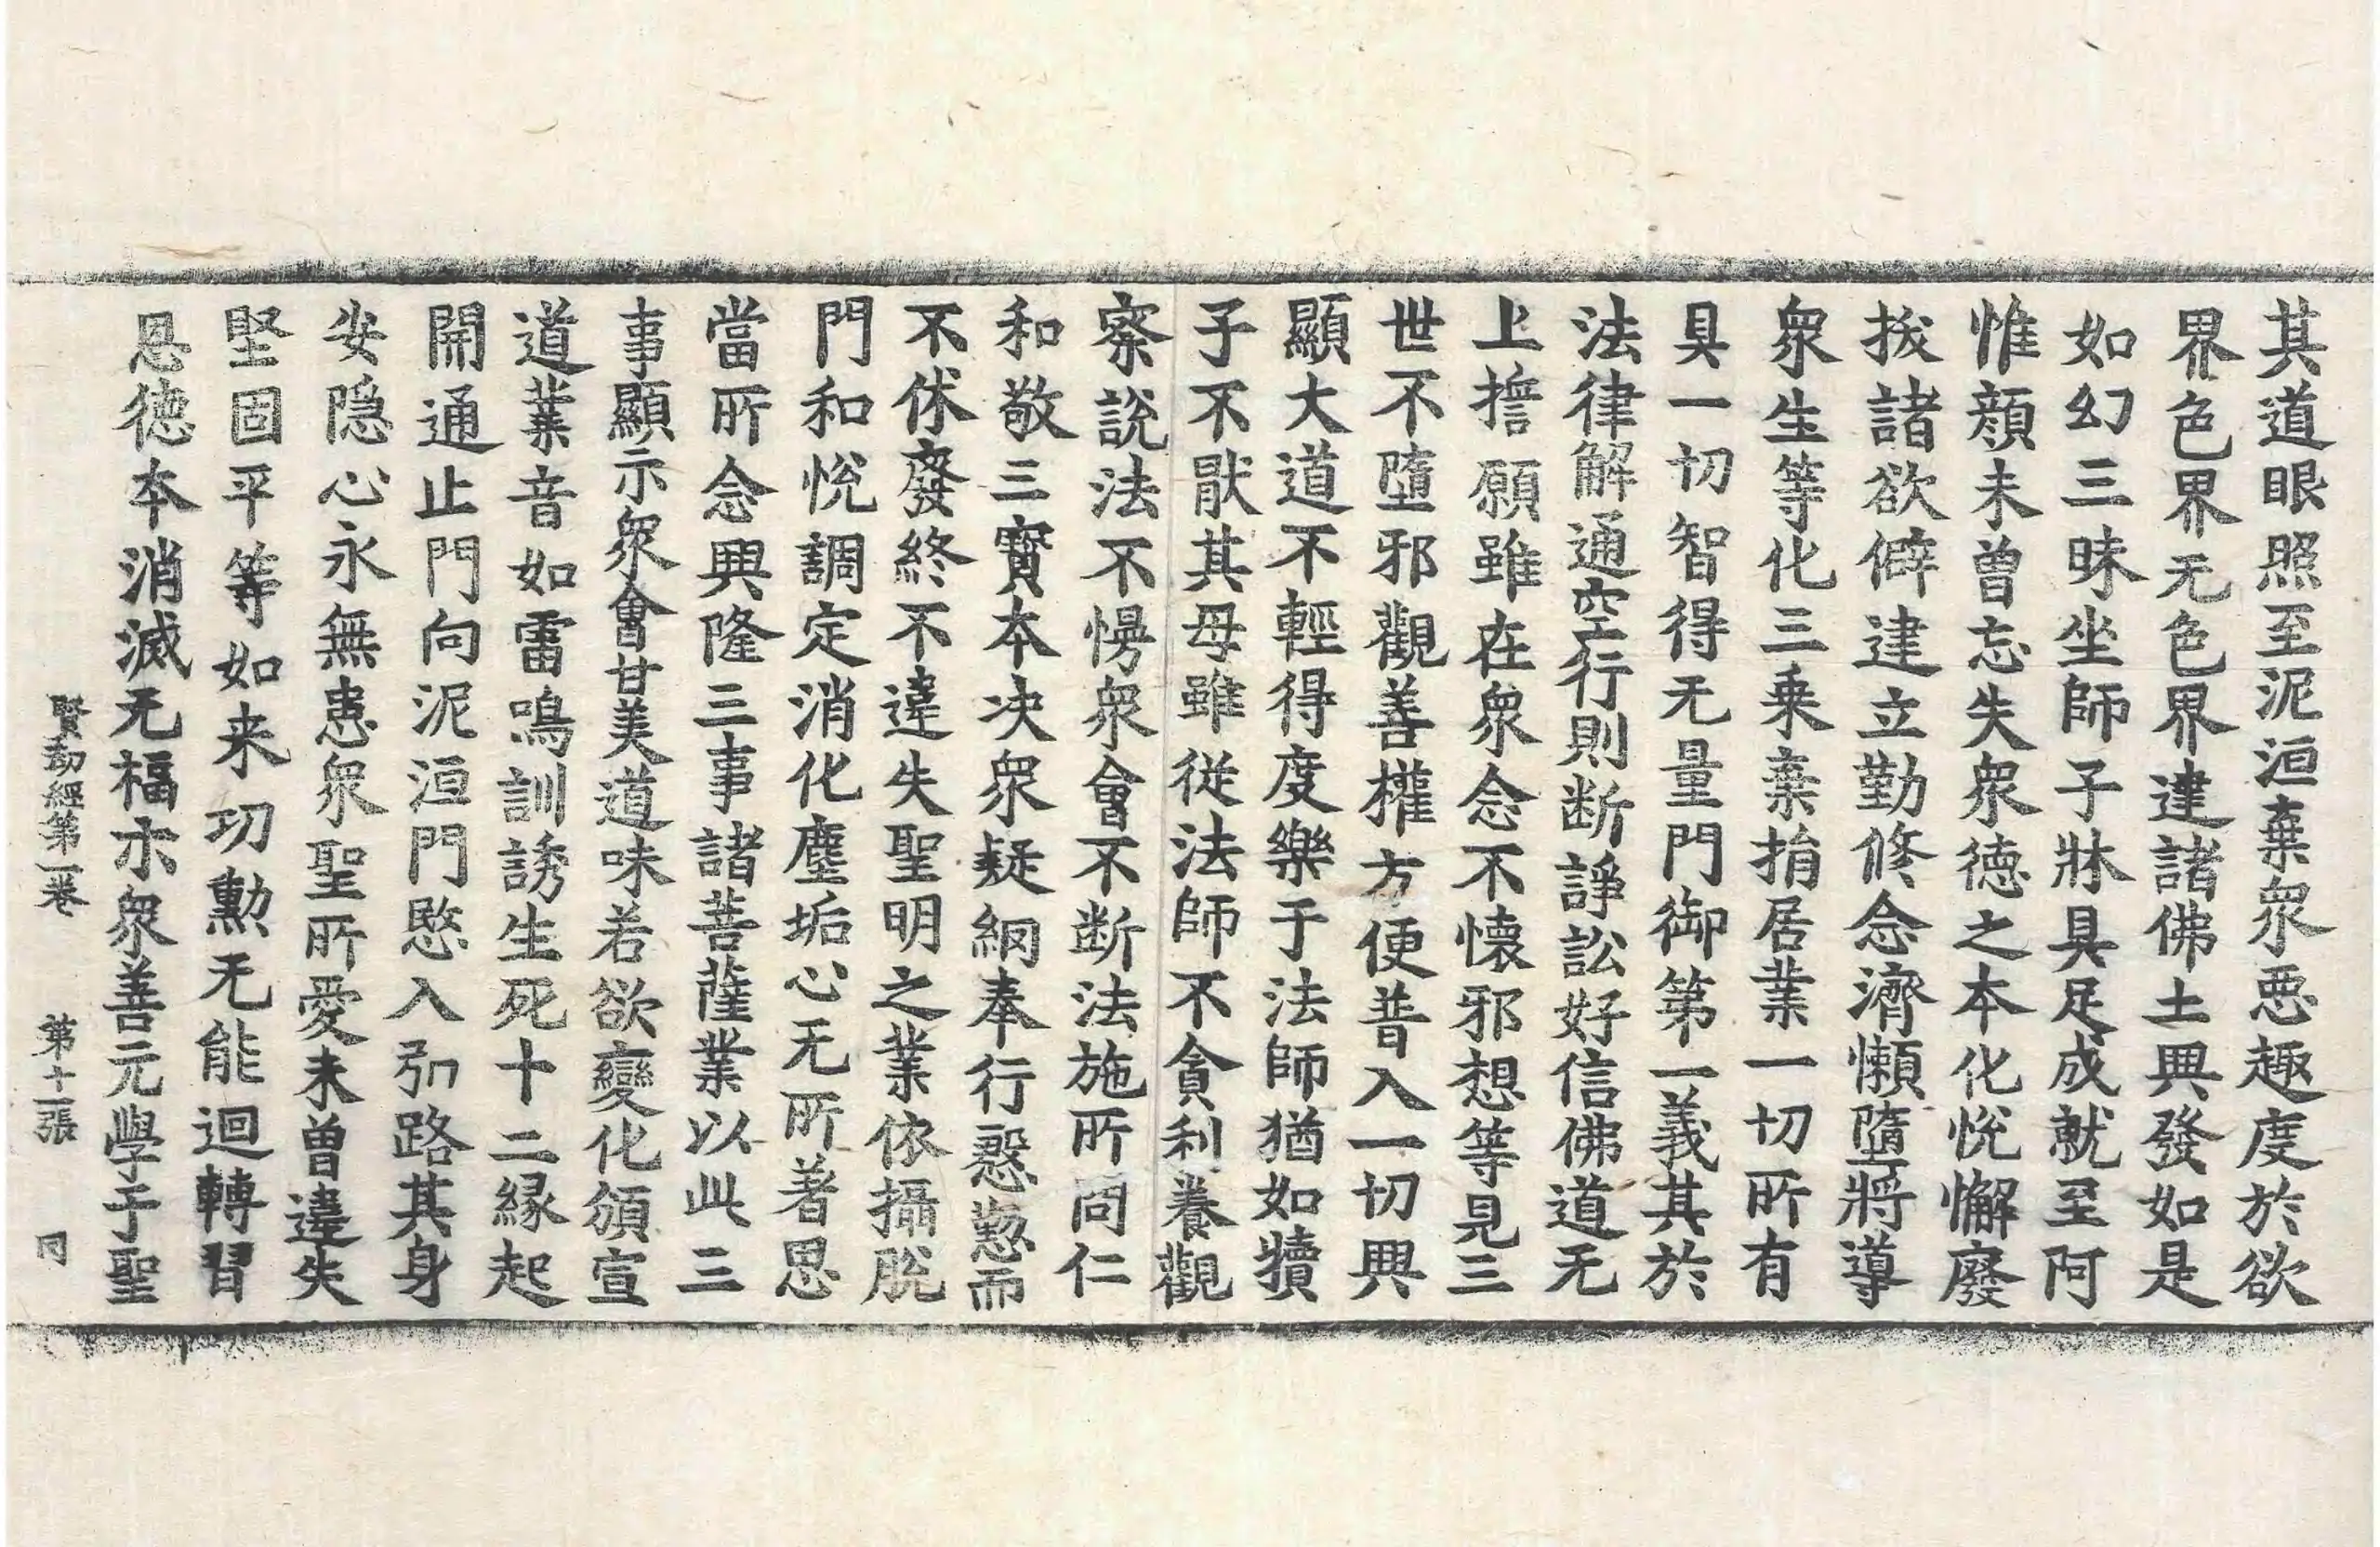 其道眼照至泥洹棄衆惡趣度於欲
界色界无色界建諸佛土興發如是
如幻三昧坐師子牀具足成就至阿
惟顔未曾忘失衆德之本化恱懈廢
拔諸欲僻建立勤修念濟懶墮將導
衆生等化三乗棄捐居業一切所有
具一切智得无量門御第一義其於
法律解通空行則断諍訟好信佛道无
上擔願雖在衆念不懷邪想等見三
世不墮邪觀善權方便普入一切興
顯大道不輕得度樂于法師猶如犢
子不猒其母雖從法師不貪利養觀
察說法不慢衆會不断法施所問仁
和敬三寳本决衆疑網奉行慇懃而
不休廢終不違失聖明之業依攝脫
門和恱調定消化塵垢心无所著思
當所念興隆三事諸菩薩業以此三
事顯示衆會甘美道味若欲變化頒宣
道業音如雷鳴訓誘生死十二緣起
開通止門向泥洹門愍入引路其身
安隱心永無患衆聖所愛未曾違失
堅固平等如来功勳无能迴轉習
恩德本消滅无福示衆善元學于聖
賢劫經第一卷 第十二張 同